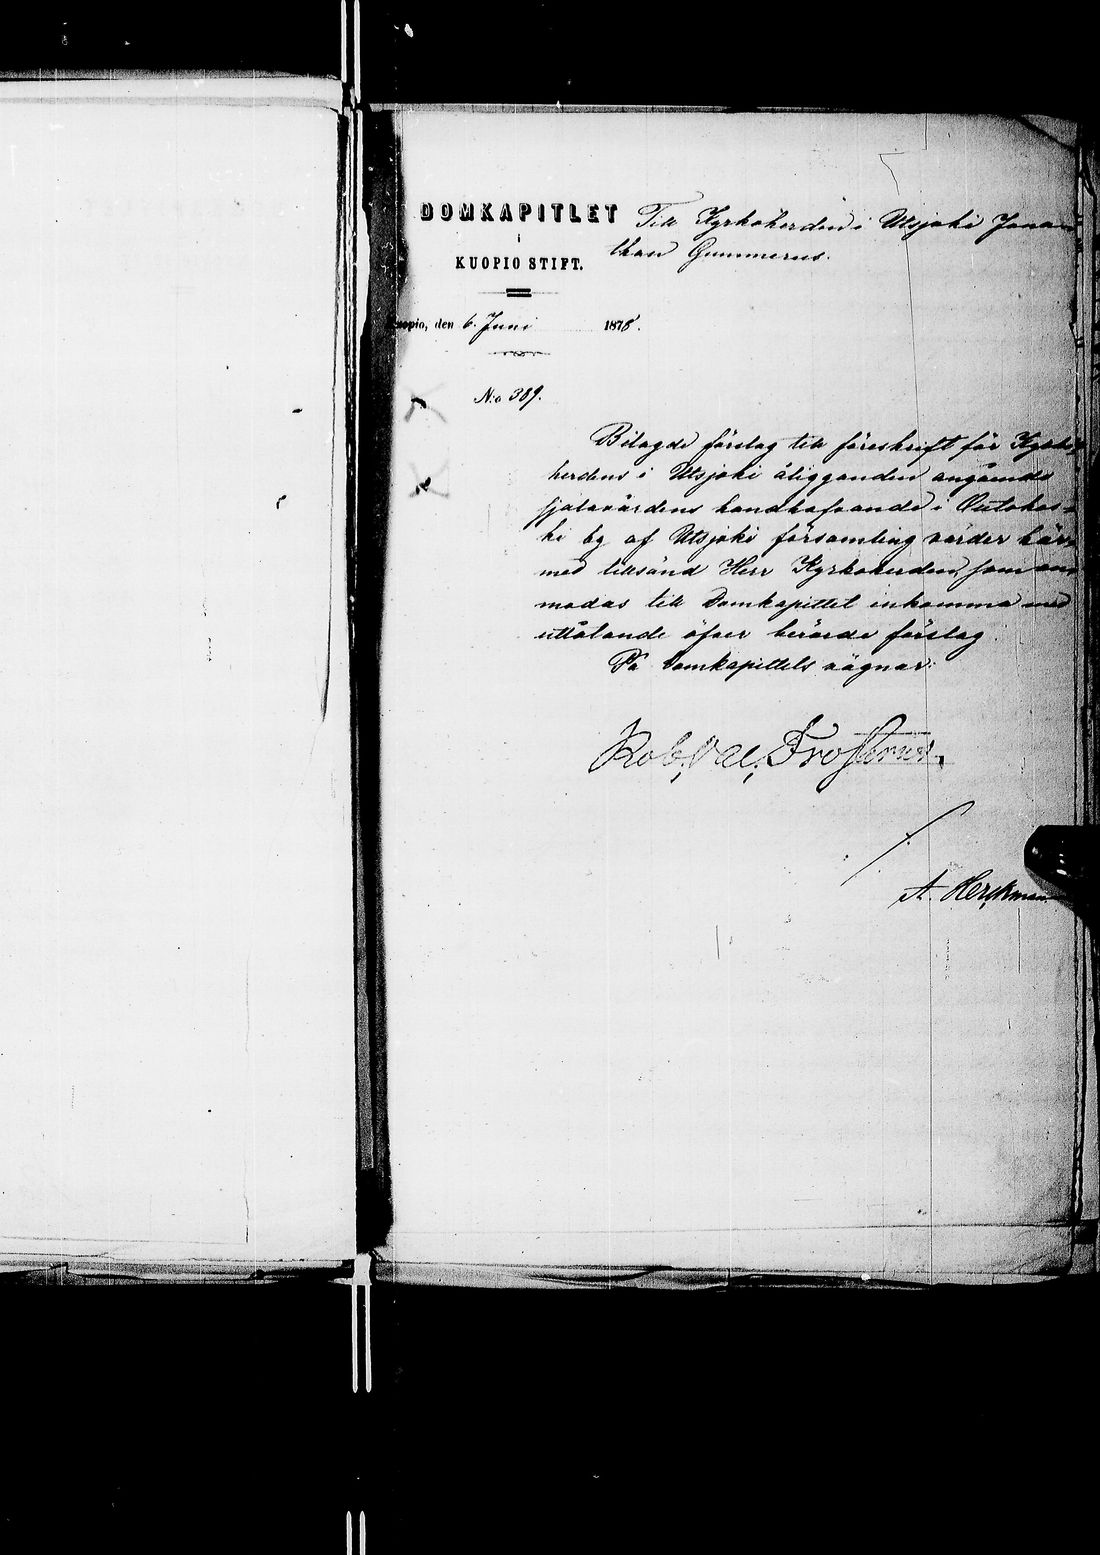 DOMKAPITLET
i
KUOPIO STIFT.
Kuopio, den 6. Juni 1878.
N:o 389.
Till Kyrkoherden i Utsjoki Jona-
than Gummerus.
Bilagde förslag till föreskrift för Kyrko-
herdens i Utsjoki åligganden angående
sjelavårdens handhafvande i Outakos-
ki by af Utsjoki församling varder här-
med tillsänd Herr Kyrkoherden, som an-
modas till Domkapitlet inkomma med
utlåtande öfver berörde förslag.
På Domkapitlets vägnar:
Rob. Val. Frosterus.
A. Herckman.